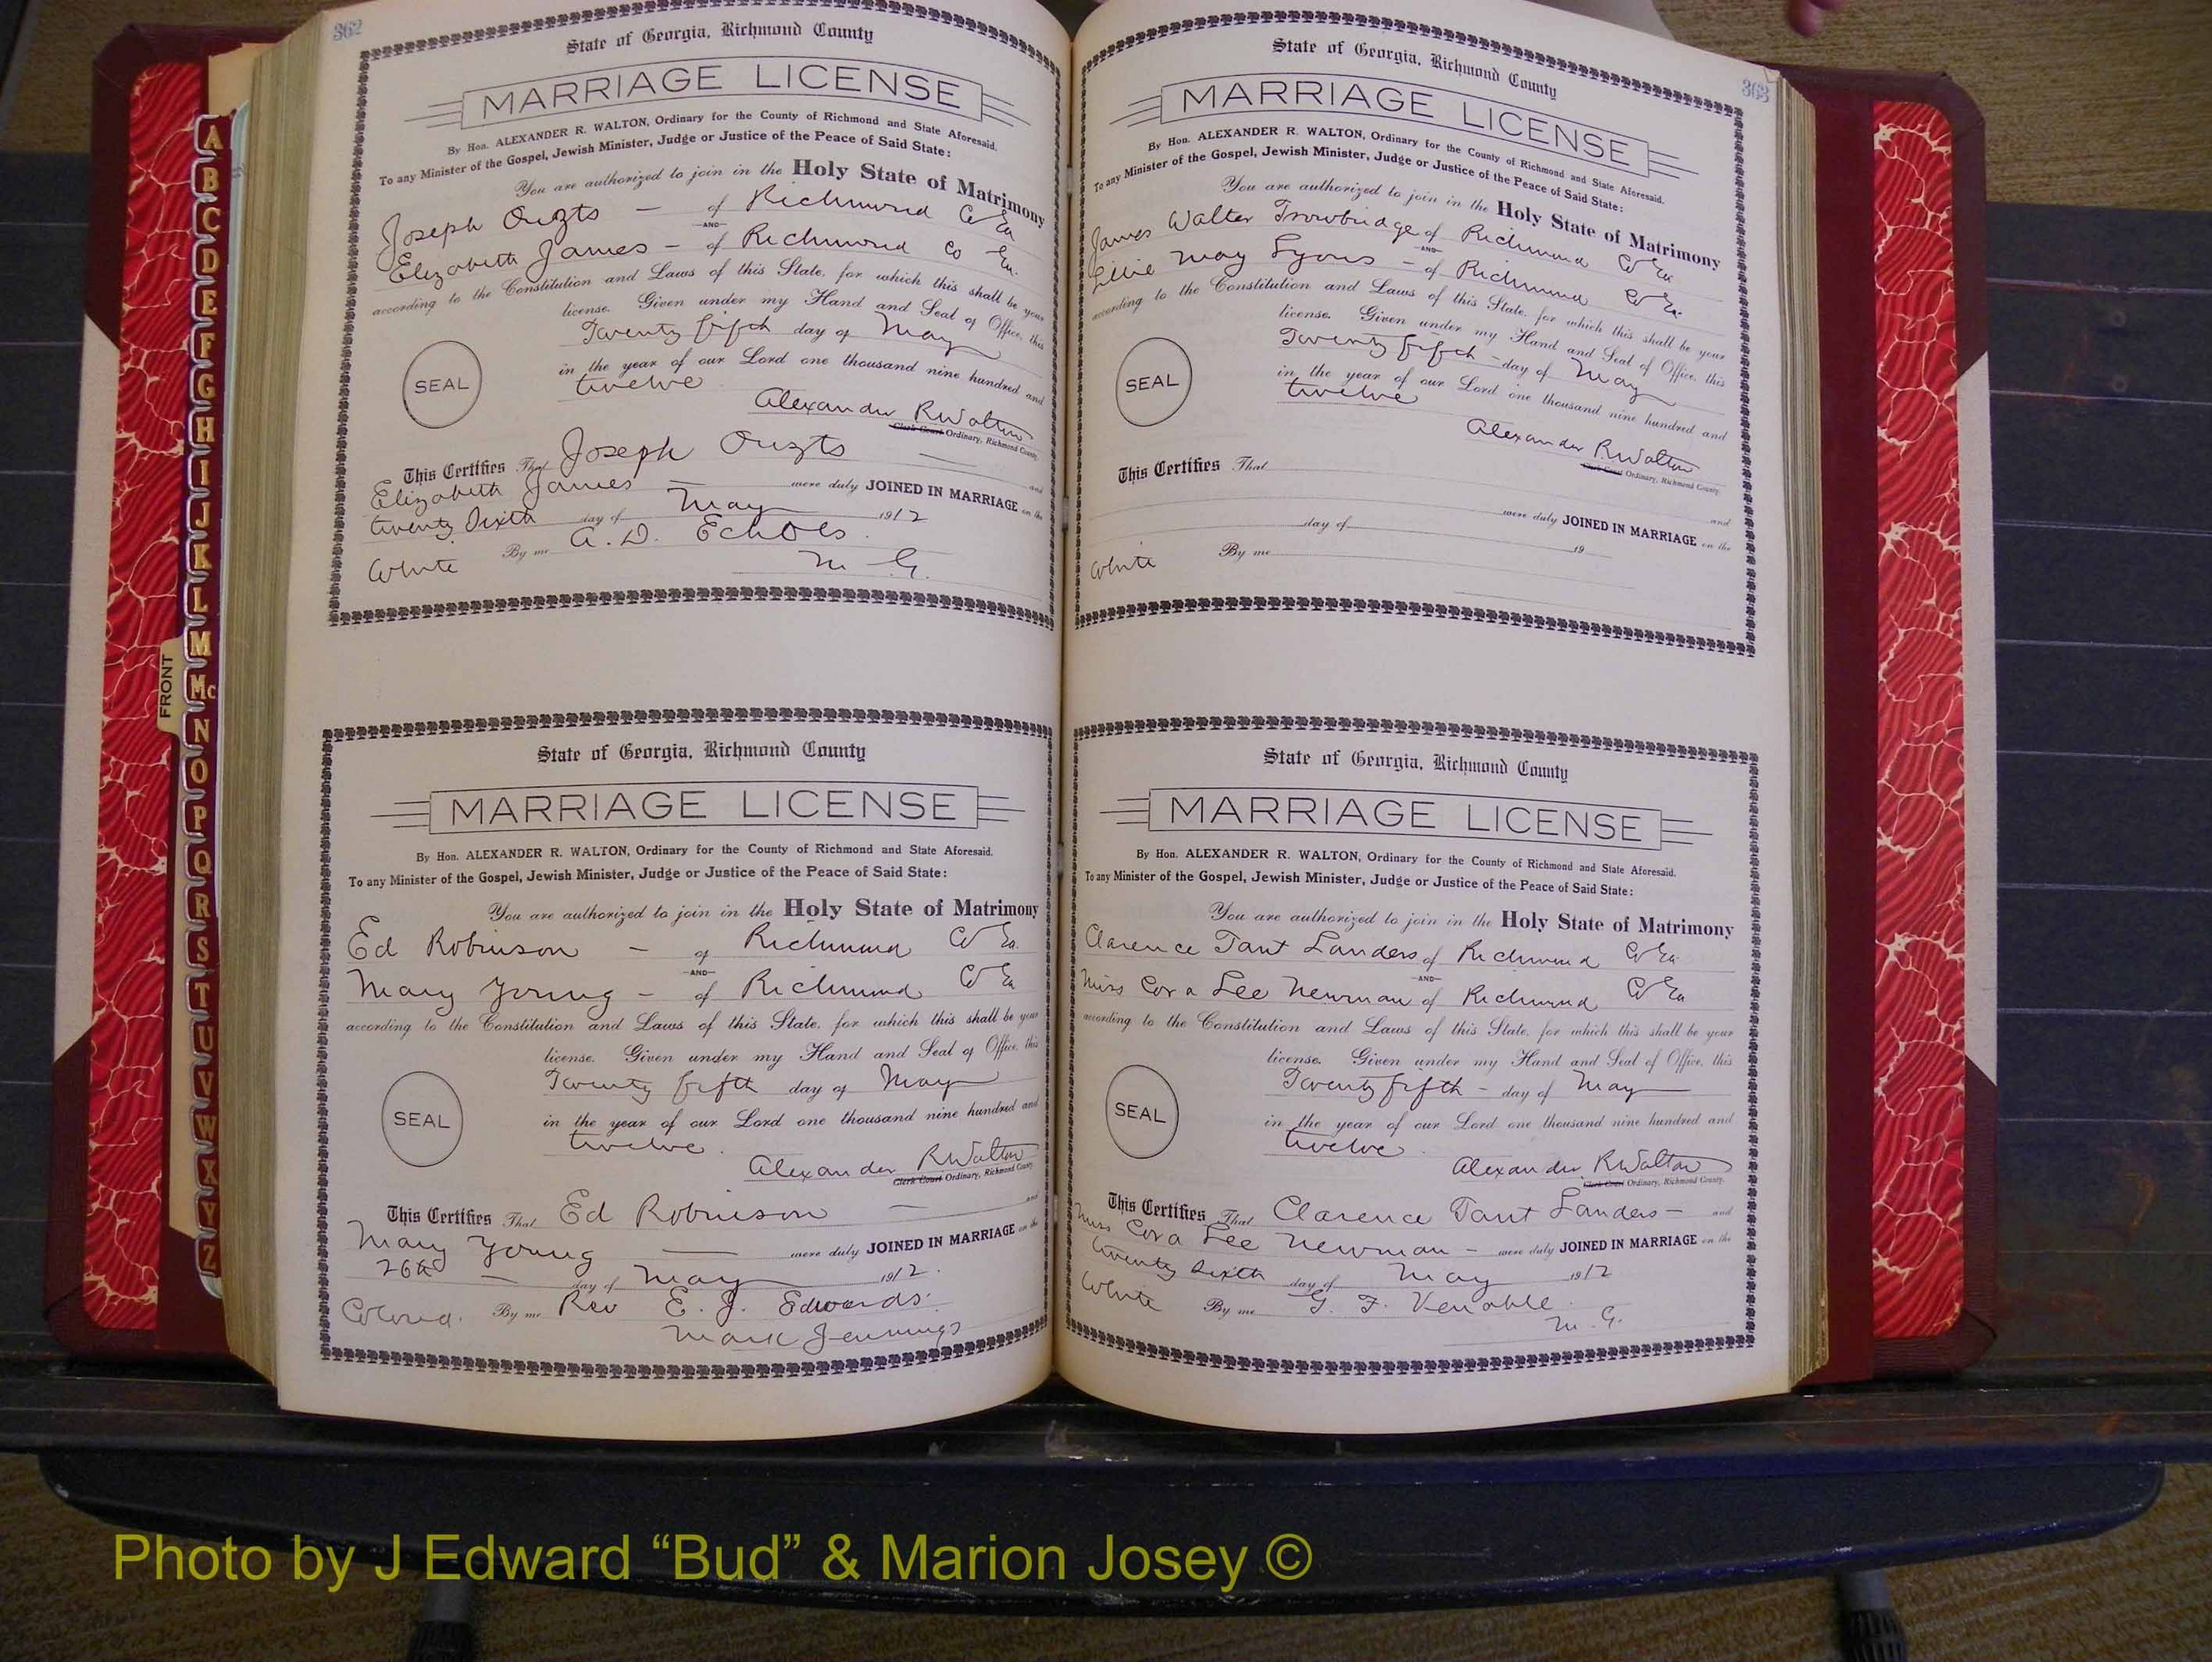 362
State of Georgia, Richmond County
MARRIAGE LICENSE
By Hon. ALEXANDER R. WALTON, Ordinary for the County of Richmond and State Aforesaid.
To any Minister of the Gospel, Jewish Minister, Judge or Justice of the Peace of Said State:
You are authorized to join in the Holy State of Matrimony
Joseph Ouzts — of Richmond Co Ga
AND
Elizabeth James — of Richmond Co Ga.
according to the Constitution and Laws of this State, for which this shall be your
license. Given under my Hand and Seal of Office, this
Twenty fifth day of May
in the year of our Lord one thousand nine hundred and
SEAL
twelve
Alexander R Walton
Clerk Court Ordinary, Richmond County.
This Certifies That Joseph Ouzts — and
Elizabeth James — were duly JOINED IN MARRIAGE on the
twenty Sixth day of May 1912
White By me A. D. Echols.
M. G.
State of Georgia, Richmond County
MARRIAGE LICENSE
By Hon. ALEXANDER R. WALTON, Ordinary for the County of Richmond and State Aforesaid.
To any Minister of the Gospel, Jewish Minister, Judge or Justice of the Peace of Said State:
You are authorized to join in the Holy State of Matrimony
Ed Robinson — of Richmond Co Ga.
AND
Mary Young — of Richmond Co Ga
according to the Constitution and Laws of this State, for which this shall be your
license. Given under my Hand and Seal of Office, this
Twenty fifth day of May
SEAL
in the year of our Lord one thousand nine hundred and
twelve.
Alexander R Walton
Clerk Court Ordinary, Richmond County
This Certifies That Ed Robinson — and
Mary Young — were duly JOINED IN MARRIAGE on the
26th — day of May 1912.
Colored. By me Rev E. J. Edwards.
Mark Jennings
363
State of Georgia, Richmond County
MARRIAGE LICENSE
By Hon. ALEXANDER R. WALTON, Ordinary for the County of Richmond and State Aforesaid.
To any Minister of the Gospel, Jewish Minister, Judge or Justice of the Peace of Said State:
You are authorized to join in the Holy State of Matrimony
James Walter Trowbridge of Richmond Co Ga
AND
Lillie May Lyons — of Richmond Co Ga
according to the Constitution and Laws of this State, for which this shall be your
license. Given under my Hand and Seal of Office, this
Twenty fifth — day of May
SEAL
in the year of our Lord one thousand nine hundred and
twelve
Alexander R. Walton
Clerk Court Ordinary, Richmond County
This Certifies That
and
were duly JOINED IN MARRIAGE on the
day of 19
White By me
State of Georgia, Richmond County
MARRIAGE LICENSE
By Hon. ALEXANDER R. WALTON, Ordinary for the County of Richmond and State Aforesaid.
To any Minister of the Gospel, Jewish Minister, Judge or Justice of the Peace of Said State:
You are authorized to join in the Holy State of Matrimony
Clarence Tant Landers of Richmond Co Ga
AND
Miss Cora Lee Newman of Richmond Co Ga
according to the Constitution and Laws of this State, for which this shall be your
license. Given under my Hand and Seal of Office, this
Twenty fifth — day of May
SEAL
in the year of our Lord one thousand nine hundred and
twelve
Alexander R Walton
Clerk Court Ordinary, Richmond County.
This Certifies That Clarence Tant Landers — and
Miss Cora Lee Newman — were duly JOINED IN MARRIAGE on the
twenty Sixth day of May 1912
White By me G. F. Venable.
M. G.
FRONT
A
B
C
D
E
F
G
H
I
J
K
L
M
Mc
N
O
P
Q
R
S
T
U
V
W
X
Y
Z
Photo by J Edward “Bud” & Marion Josey ©